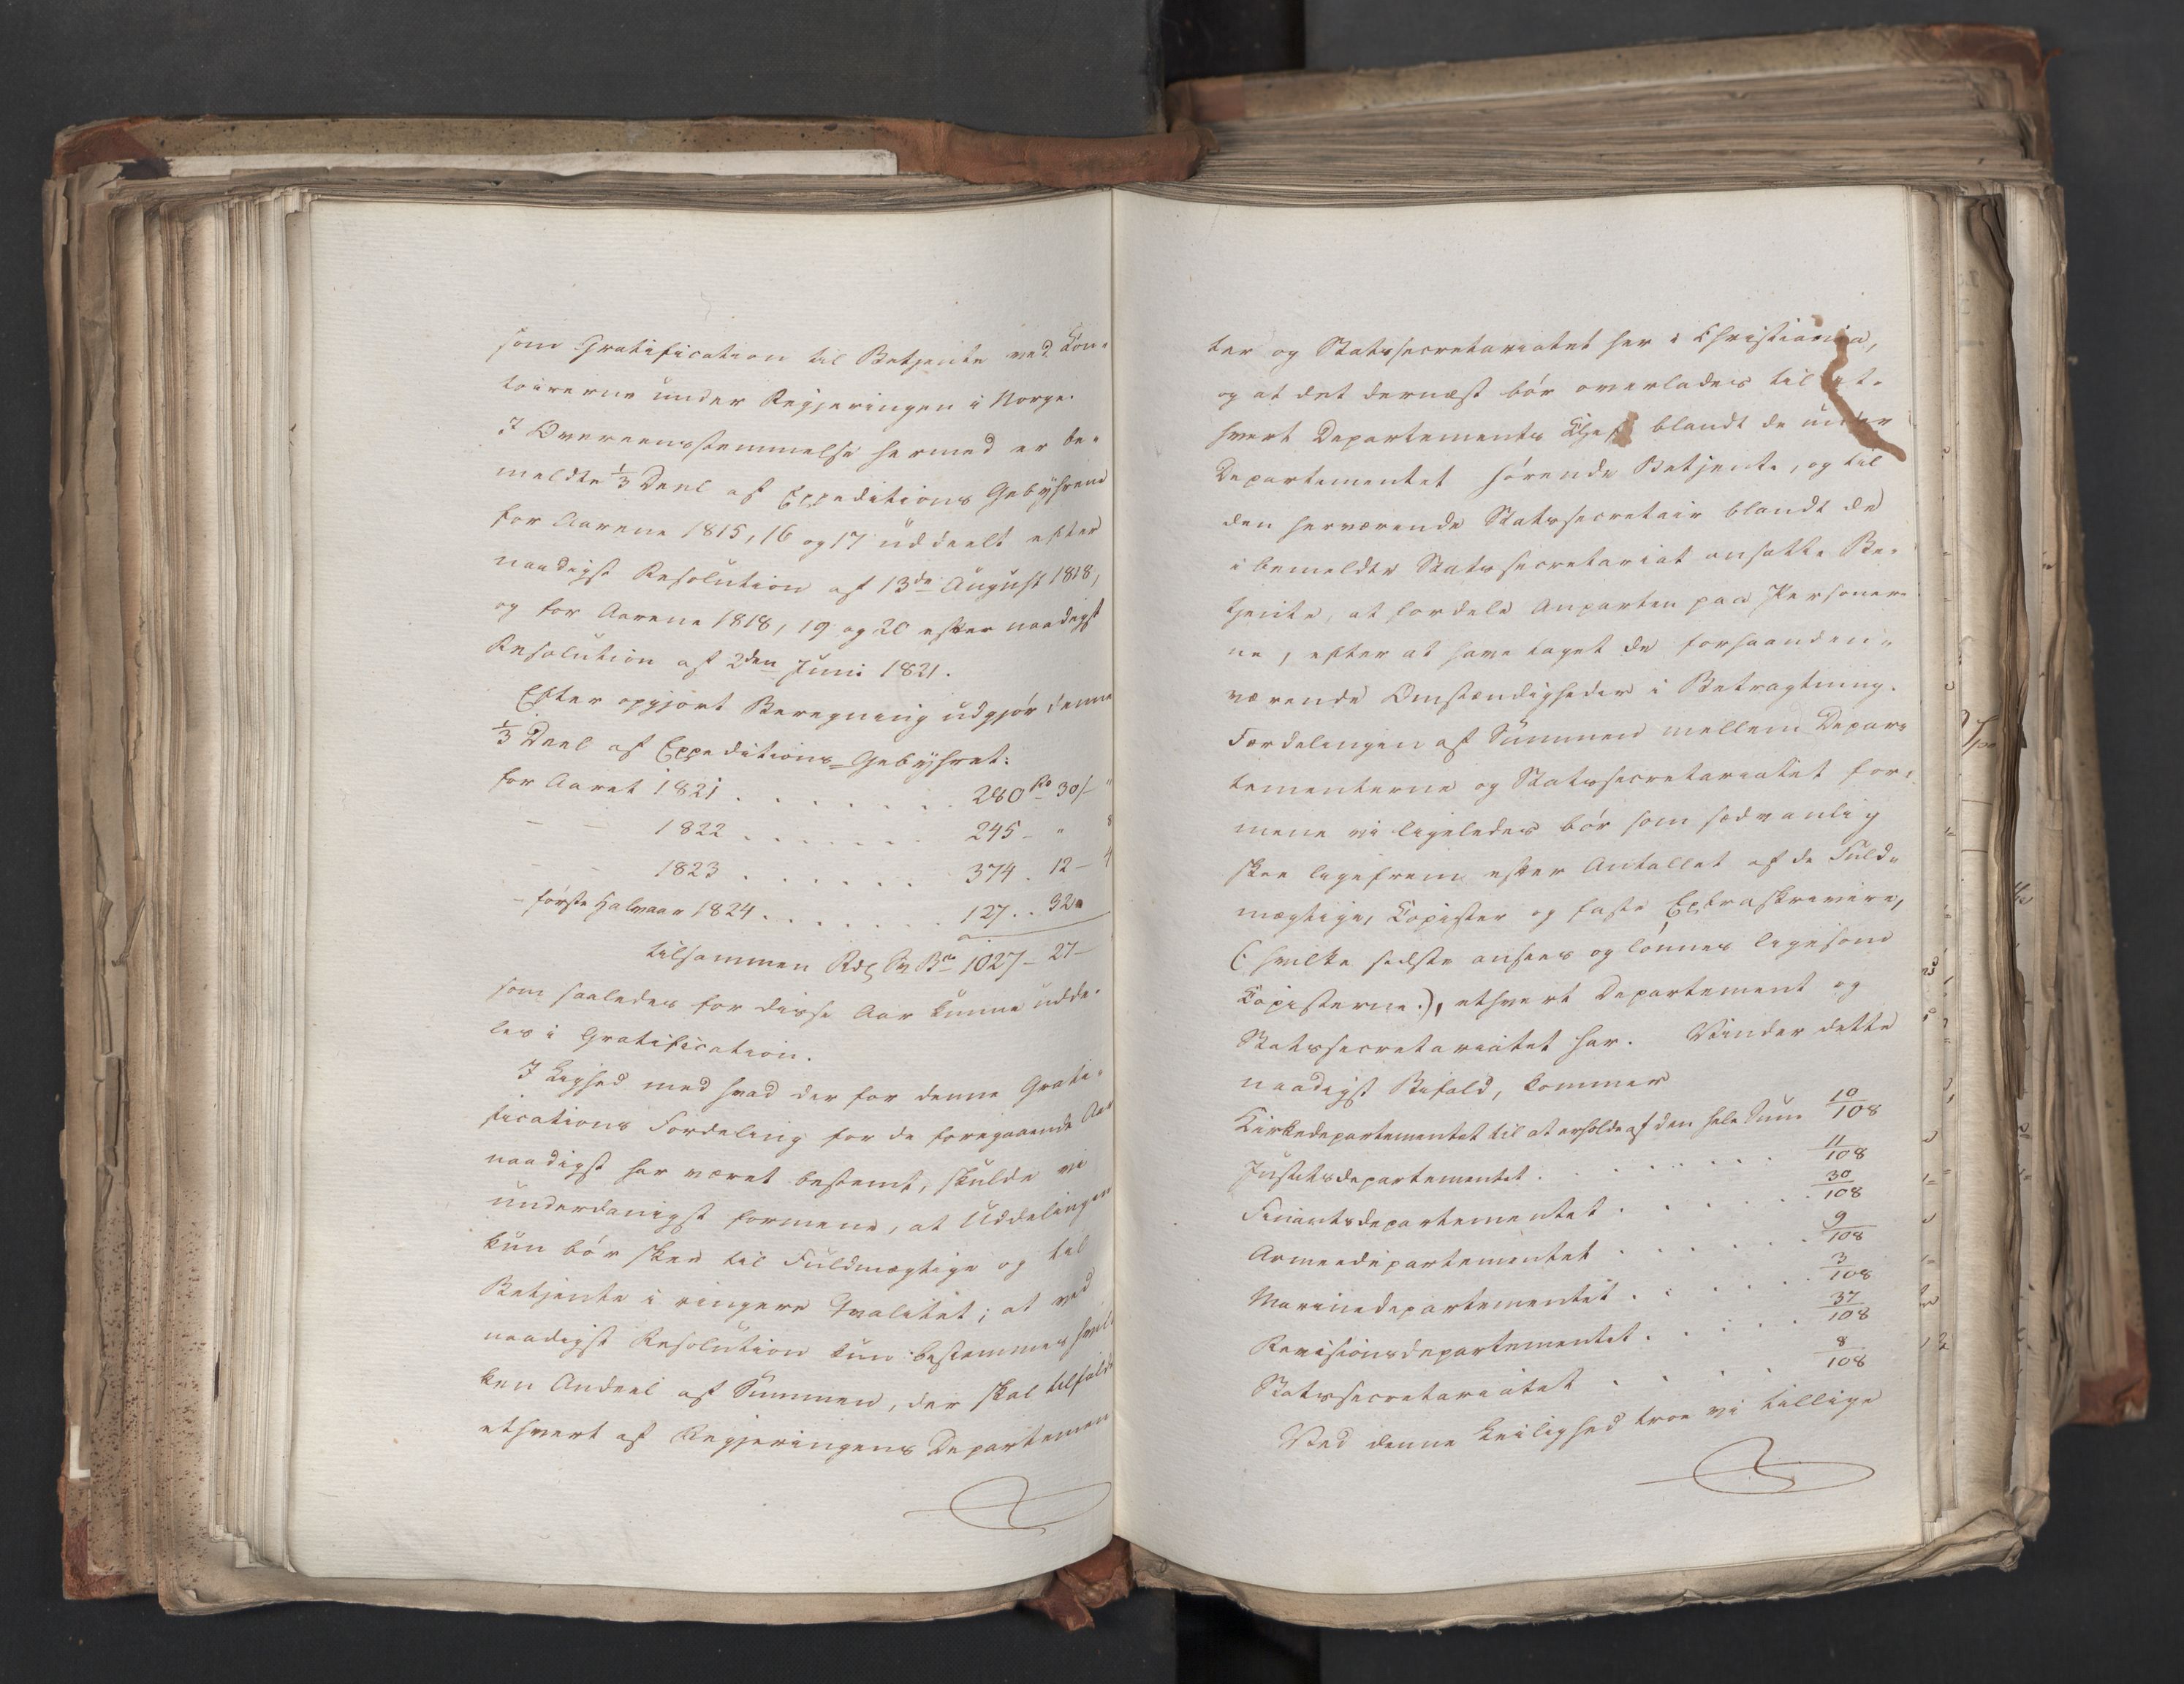 som Gratification til Betjente ved Con-
toirerne under Regjeringen i Norge.
I Overeensstemmelse hermed er be-
meldte 1/3 Deel af Expeditions Gebyhrene
for Aarene 1815, 16 og 17 uddeelt efter
naadigst Resolution af 13de August 1818,
og for Aarene 1818, 19 og 20 efter naadigst
Resolution af 2den Juni 1821.
Efter opgjort Beregning udgjør denne
1/3 Deel af Expeditions-Gebyhret:
for Aaret 1821 . . . . . . . . 280 30 "
— — 1822 . . . . . . . 245 - " 8
— — 1823 . . . . . . . 374 . 12 - 4
- første Halvaar 1824 . . . . . . . 127 . . 32
tilsammen 1027 - 27 -
som saaledes for disse Aar kunne udde-
les i Gratification.
I Lighed med hvad der for denne Grati-
fications Fordeling for de foregaaende Aar
naadigst har været bestemt, skulde vi
underdanigst formene, at Uddelingen
kun bør skee til Fuldmægtige og til
Betjente i ringere Qvalitet; at ved
naadigst Resolution kun bestemmes hvil-
ken Andeel af Summen, der skal tilfalde
ethvert af Regjeringens Departemen
ter og Statssecretariatet her i Christiania,
og at det dernæst bør overlades til et-
hvert Departements Chef blandt de under
Departementet hørende Betjente, og til
den herværende Statssecretair blandt de
i bemeldte Statssecretariat ansatte Be-
tjente, at fordele Anparten paa Personer-
ne, efter at have taget de forhaanden-
værende Omstændigheder i Betragtning.
Fordelingen af Summen mellem Depar-
tementerne og Statssecretariatet for-
mene vi ligeledes bør som sædvanlig
skee ligefrem efter Antallet af de Fuld-
mægtige, Copister og faste Extraskrivere,
(: hvilke sidste ansees og lønnes ligesom
Copisterne :), ethvert Departement og
Statssecretariatet har. Vinder dette
naadigst Bifald, kommer
Kirkedepartementet til at erholde af den hele Sum 10/108
Justitsdepartementet . . . . . . . 11/108
Finantsdepartementet . . . . . . 30/108
Armeedepartementet . . . . . . 9/108
Marinedepartementet . . . . . 3/108
Revisionsdepartementet . . . . . 37/108
Statssecretariatet . . . . . 8/108
Ved denne Leilighed troe vi tillige